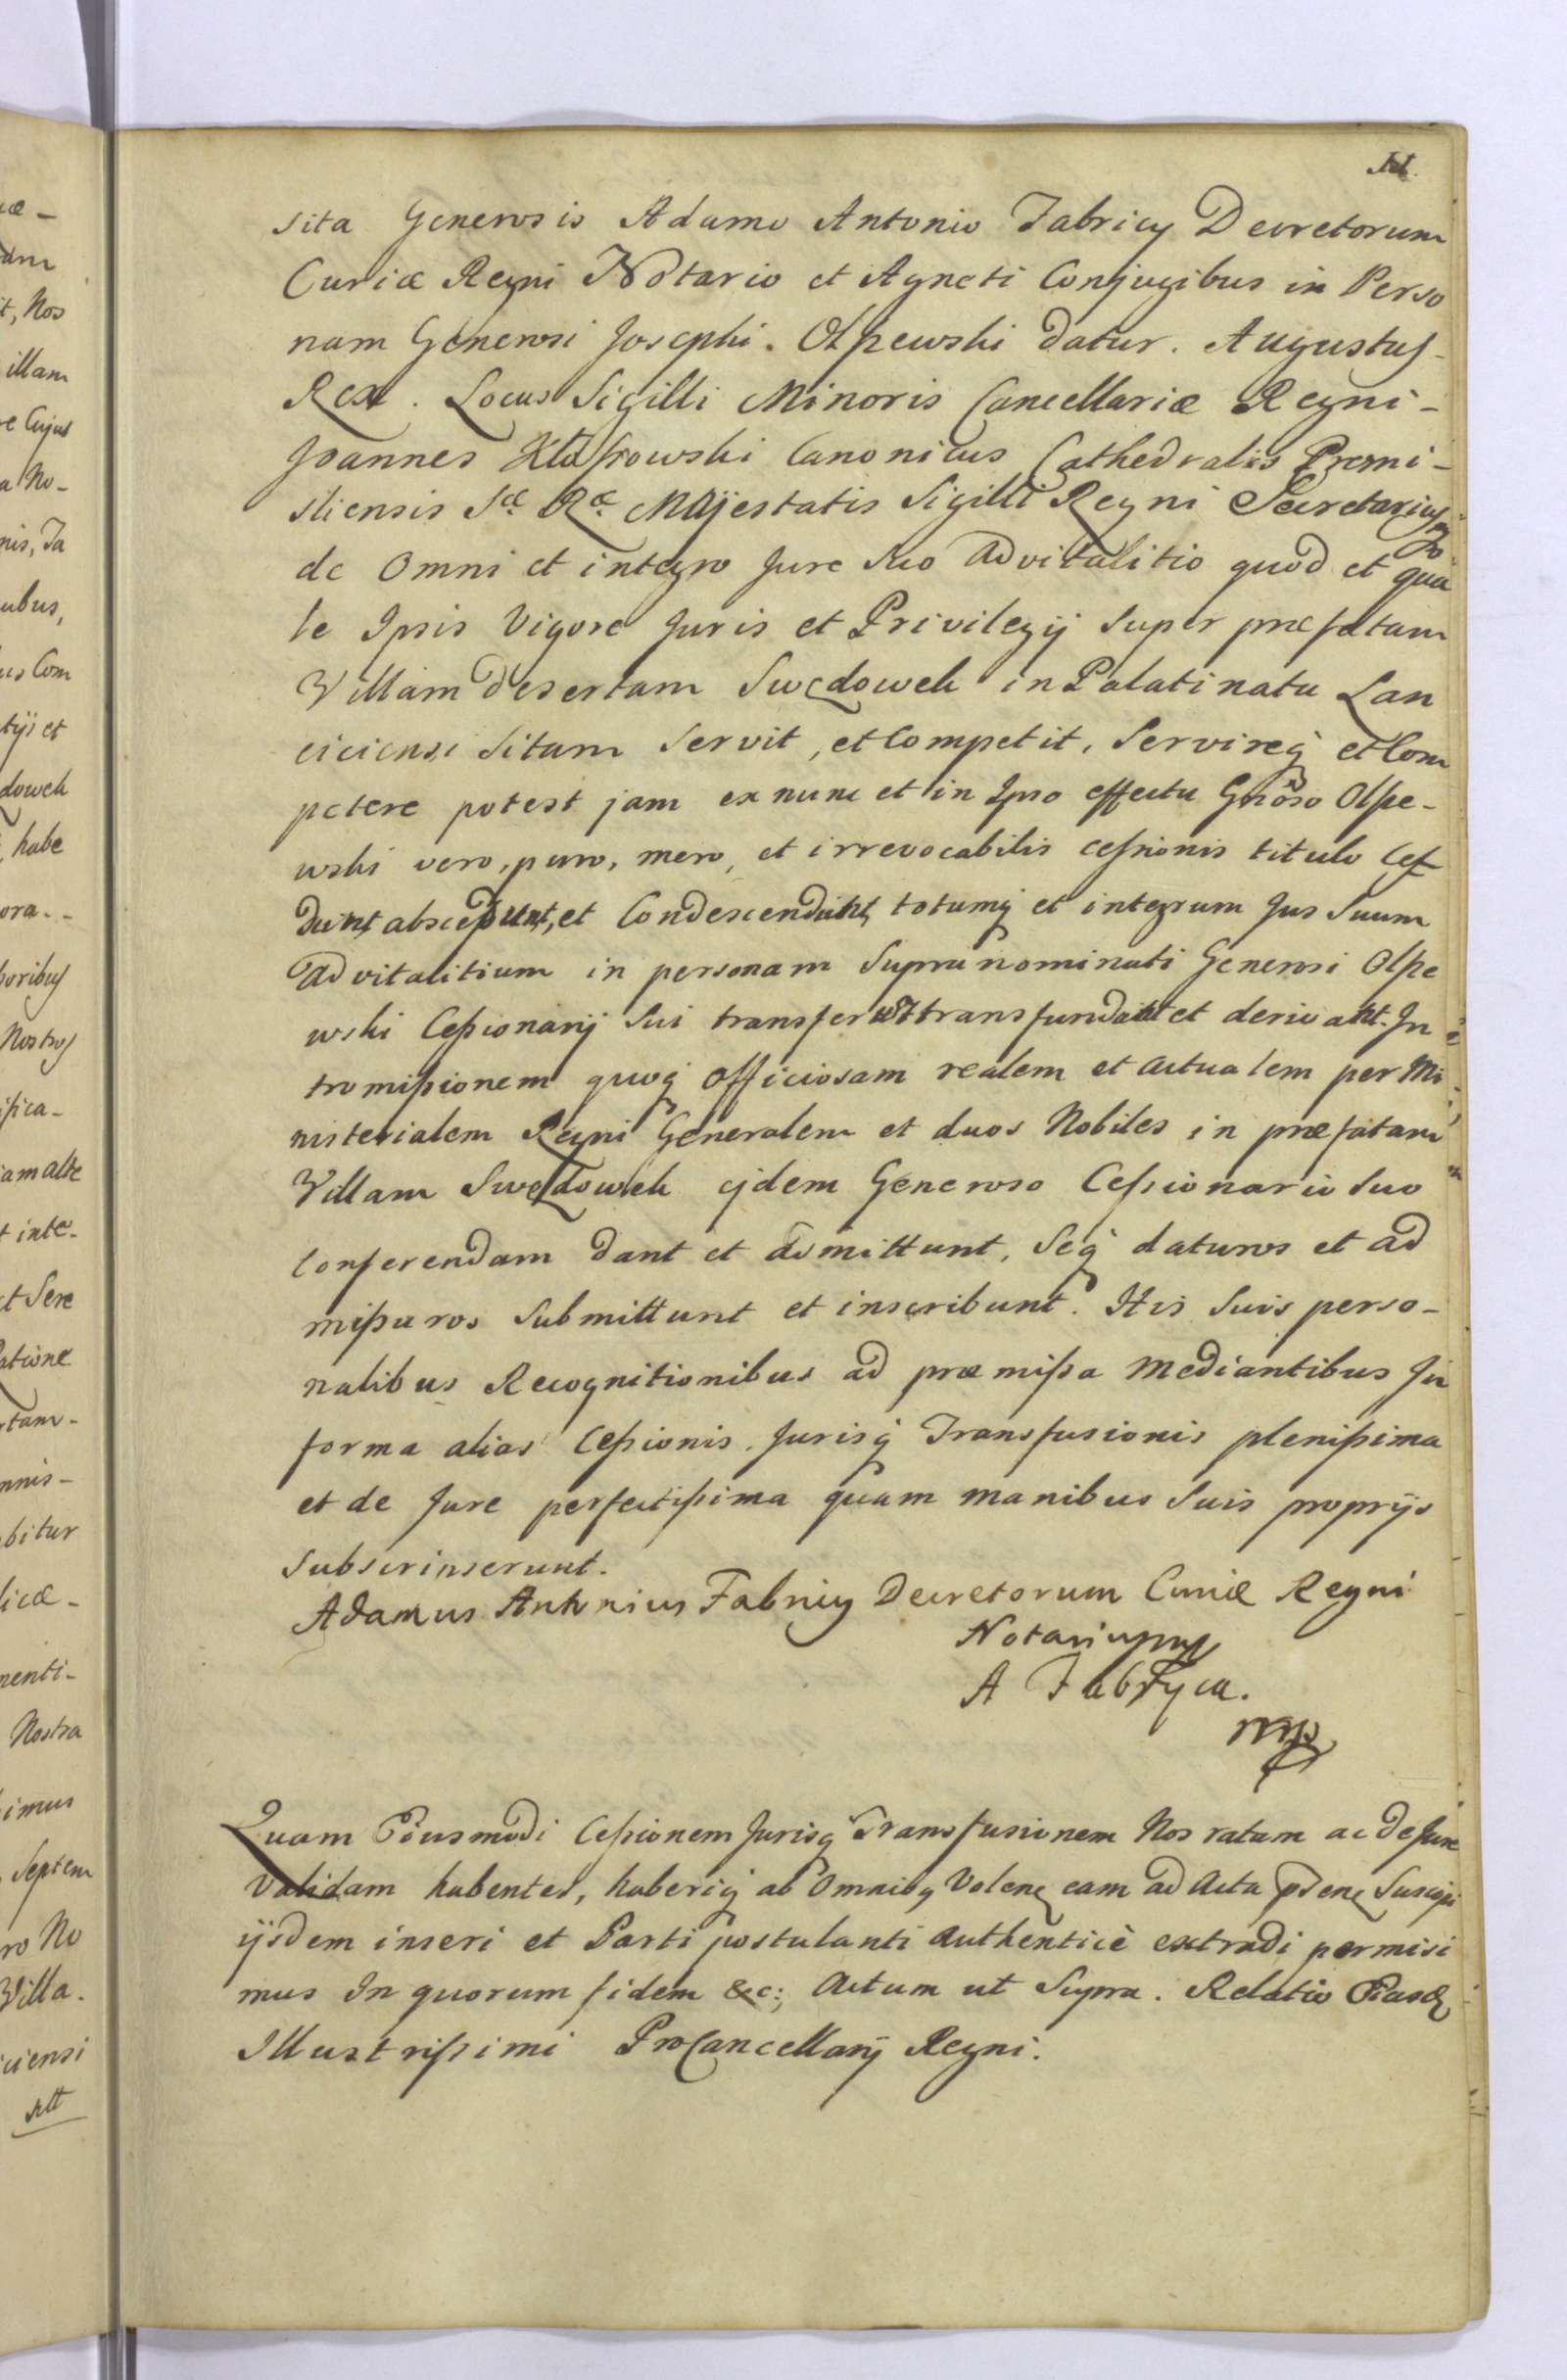 sita Generosis Adamo Antonio Fabricy Decretorum
Curiæ Regni Notario et Agneti Conjugibus in Perso
nam Generosi Josephi Olszewski datur. Augustus
Rex. Locus Sigilli Minoris Cancellariæ Regni -
Joannes Canonicus Cathedralis Premi-
sliensis Sæ Ræ Majestatis Sigilli Regni Secretarius mp
de Omni et integro Jure suo advitalitio quod et qua
le Ipsis Vigore Juris et Privilegij super præfatam
Villam desertam Swędowek in Palatinatu Lan
ciciensi sitam servit, et Competit, servireq et Com
petere potest jam ex nunc et in Ipso effectu Gnoso Olsze-
wski vero, puro, mero, et irrevocabilis cessionis titulo Ce
dunt, abscedunt, et Condescendunt, totumq et integrum Jus Suum
advitalitium in personam supra nominati Generosi Olsze
wski Cessionarij sui transferunt transfundunt et derivant. In
tromissionem quoq officiosam realem et actualem per Mi
nisterialem Regni Generalem et duos Nobiles in præfatam
Villam Swędowek ejdem Generoso Cessionario suo
conferendam dant et admittunt, seq daturos et ad
missuros submittunt et inscribunt. His suis perso-
nalibus Recognitionibus ad præmissa mediantibus In
forma alias Cessionis, Jurisq Transfusionis plenissima
et de Jure perfectissima quam manibus suis proprijs
subscripserunt.
Adamus Antonius Fabricy Decretorum Curiæ Regni
Notarius mp
A Fabryca.
mp
Quam Eiusmodi Cessionem Jurisq Transfusionem Nos ratam ac de Jure
Validam habentes, haberiq ab Omnibq Volene eam ad Acta pdene Suscipi
ijsdem inseri et Parti postulanti authenticè extradi permisi
mus In quorum fidem &c: Actum ut Supra. Relatio Eiusd
Illustrissimi ProCancellarij Regni.